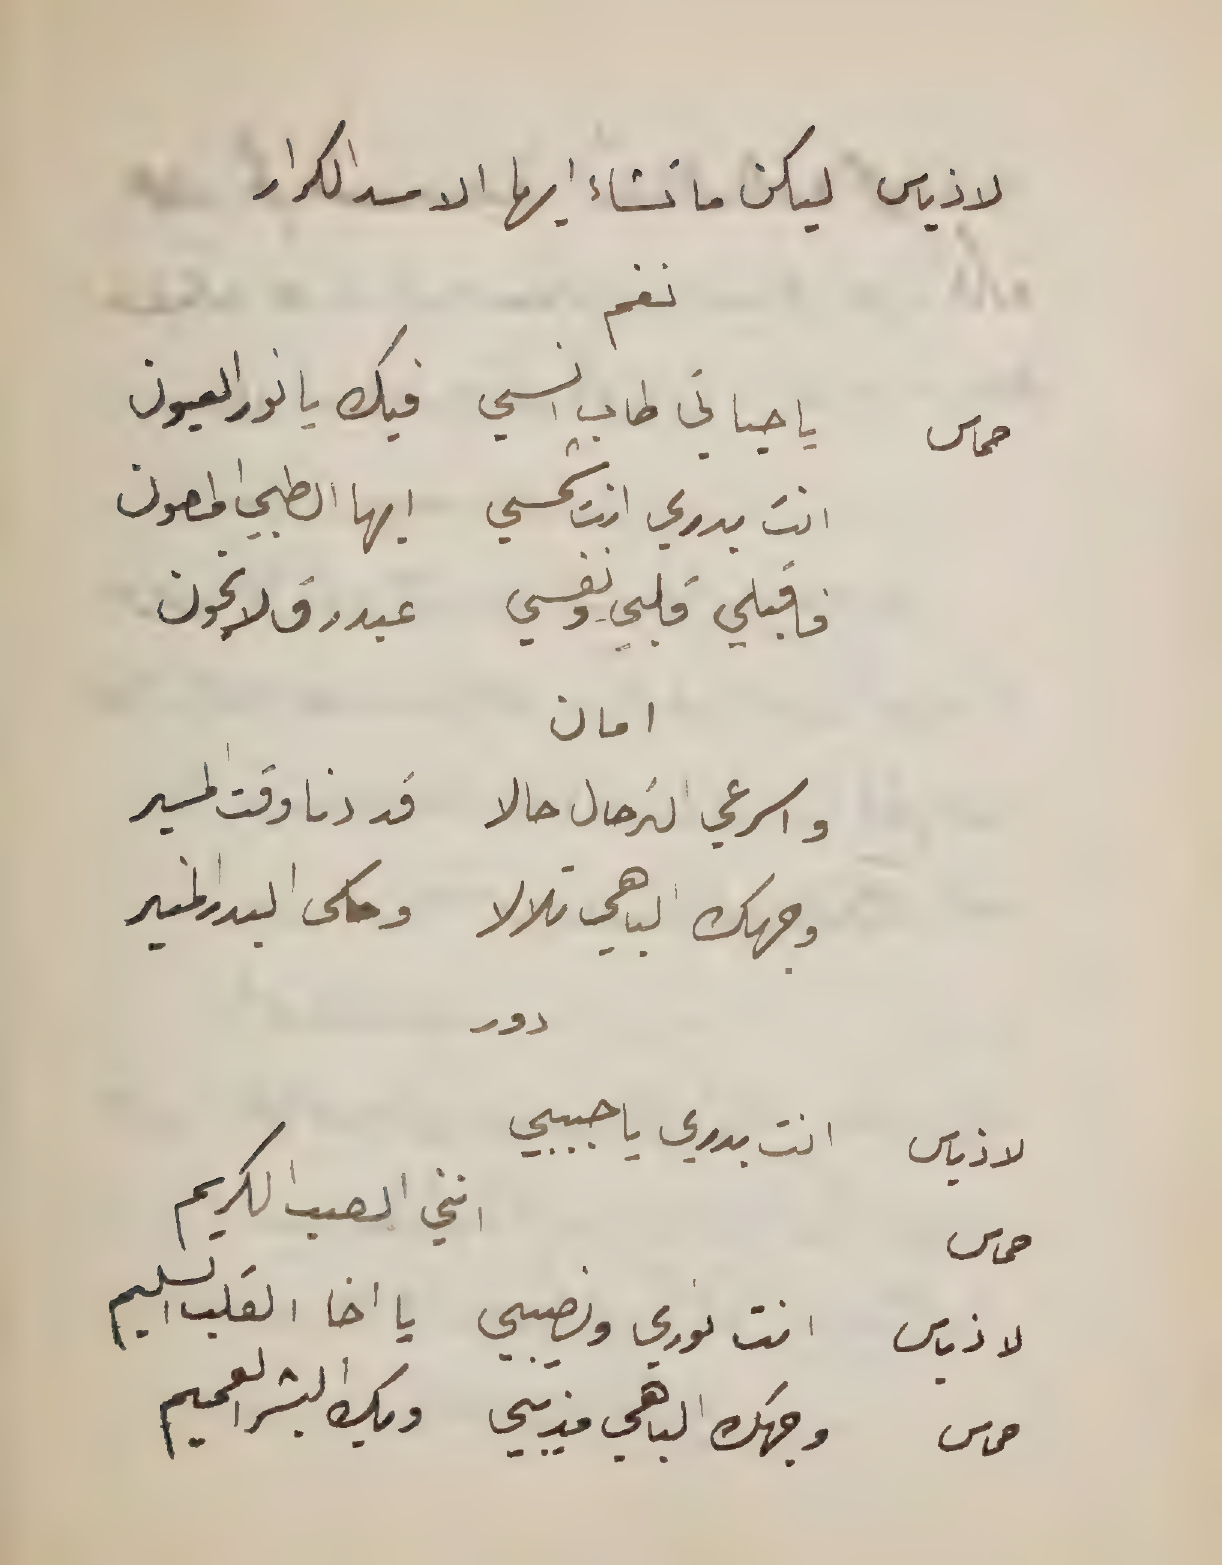 لاذياس ليكن ما تشاء ايها الاسد الكرار
نغم
حماس ياحياتي طاب انسي فيك يا نور العيون
انت بدري انت شمسي ايها الظبي المصون
فاقبلي قلبي ونفسي عبد رق لا يخون
امان
واسرعي الترحال حالا قد دنا وقت المسير
وجهك الباهي تلالا وحكى البدر المنير
دور
لاذياس انت بدري ياحبيبي
حماس انني الصب الكريم
لاذياس انت نوري ونصيبي يا اخا القلب السليم
حماس وجهك الباهي مذيبي وبك البشر العميم